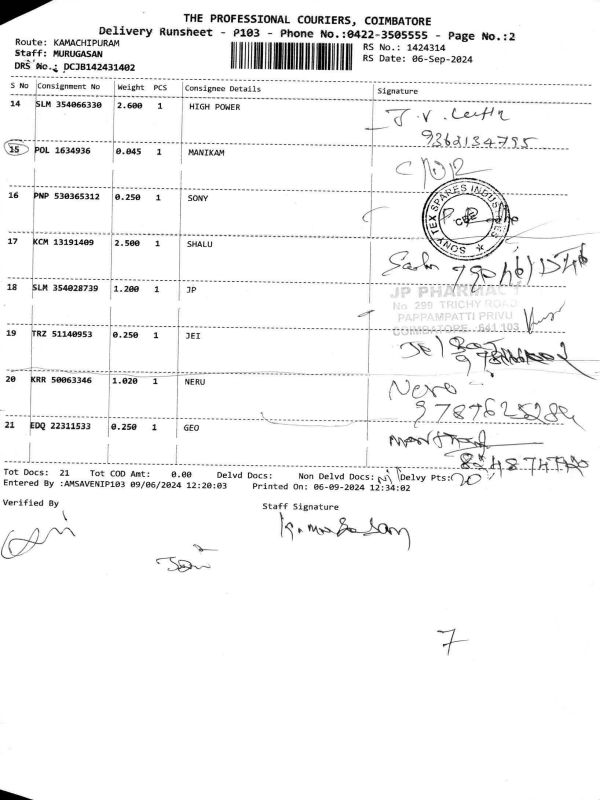 THE PROFESSIONAL COURIERS, COIMBATORE
Delivery Runsheet - P103 - Phone No.:0422-3505555 - Page No.:2
Route: KAMACHIPURAM
Staff: MURUGASAN
DRS No.: DCJB142431402
RS No.: 1424314
RS Date: 06-Sep-2024
S No Consignment No Weight PCS Consignee Details Signature
14 SLM 354066330 2.600 1 HIGH POWER
9362134795
15 POL 1634936 0.045 1 MANIKAM
16 PNP 530365312 0.250 1 SONY
SONY TEX SPARES INDUSTRIES
CBE
17 KCM 13191409 2.500 1 SHALU
18 SLM 354028739 1.200 1 JP
JP PHARMACY
No 299 TRICHY ROAD
PAPPAMPATTI PRIVU
COIMBATORE 641 103
19 TRZ 51140953 0.250 1 JEI
20 KRR 50063346 1.020 1 NERU
Neru
21 EDQ 22311533 0.250 1 GEO
Tot Docs: 21 Tot COD Amt: 0.00 Delvd Docs: Non Delvd Docs: Nil Delvy Pts: 20
Entered By :AMSAVENIP103 09/06/2024 12:20:03 Printed On: 06-09-2024 12:34:02
Verified By
Staff Signature
7